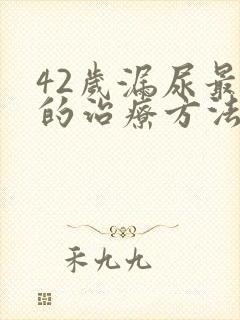 42歲漏尿最
的治療方法
禾九九